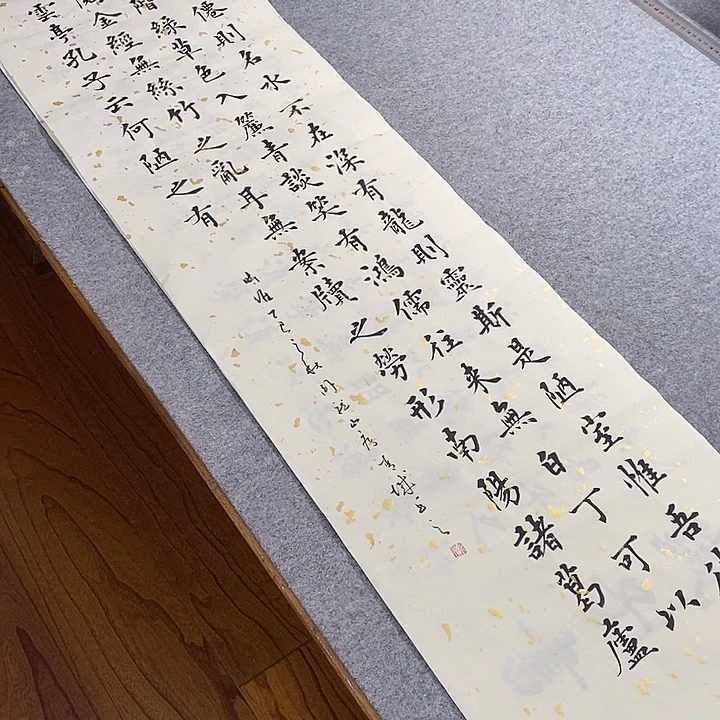 僊則名水不在深有龍則靈斯是陋室惟吾
階綠草色入簾青談笑有鴻儒往来無白丁可以
金經無絲竹之亂耳無案牘之勞形南陽諸葛廬
雲亭孔子云何陋之有
時維乙巳之秋